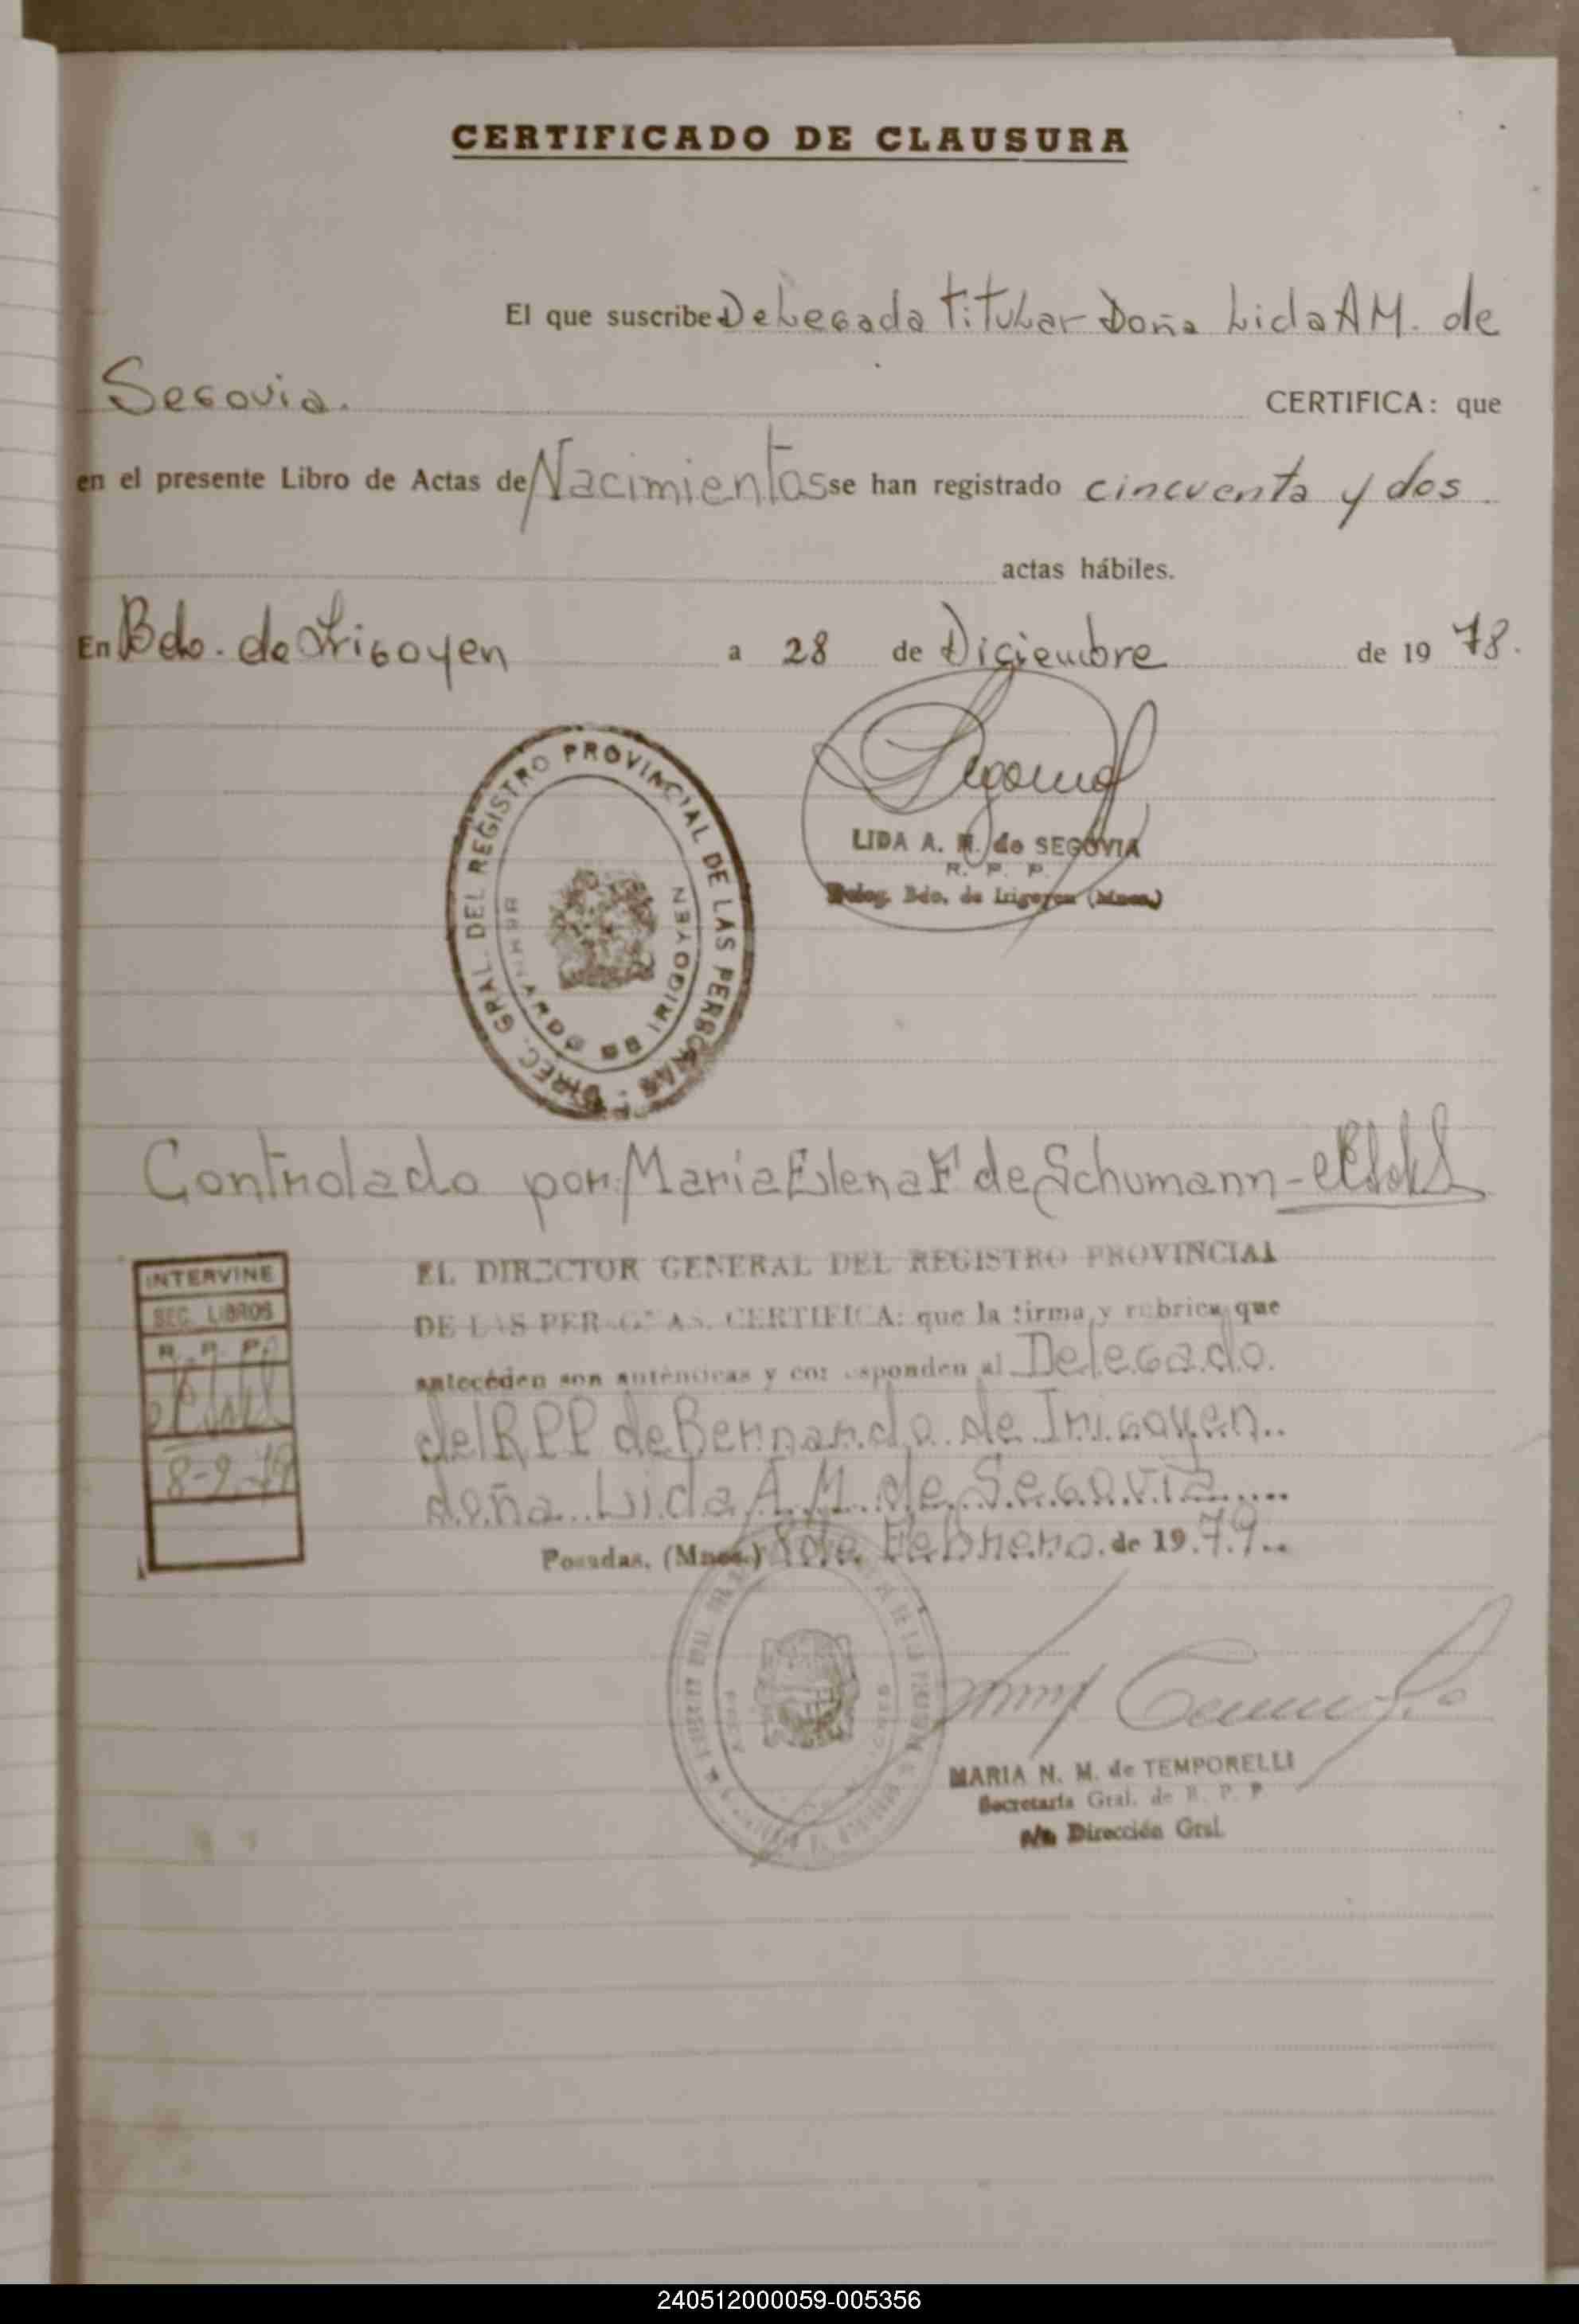 CERTIFICADO DE CLAUSURA
El que suscribe Delegada titular Doña Lida A M. de
Segovia. CERTIFICA: que
en el presente Libro de Actas de Nacimientos se han registrado cincuenta y dos
actas hábiles.
En Bdo. de Irigoyen a 28 de Diciembre de 19 78.
DIREC. GRAL. DEL REGISTRO PROVINCIAL DE LAS PERSONAS
BERNARDO DE IRIGOYEN
LIDA A. M. de SEGOVIA
R. P. P.
Deleg. Bdo. de Irigoyen (Mnes.)
Controlado por: Maria Elena F de Schumann -
INTERVINE
SEC. LIBROS
R. P. P.
8-2-79
EL DIRECTOR GENERAL DEL REGISTRO PROVINCIAL
DE LAS PERSONAS. CERTIFICA: que la firma y rubrica que
anteceden son auténticas y corresponden al Delegado.
del RPP de Bernardo de Irigoyen..
doña.. Lida A. M. de Segovia.....
Posadas, (Mnes.) 8 de Febrero. de 19.79..
MARIA N. M. de TEMPORELLI
Secretaria Gral. de R. P. P.
a/c Dirección Gral.
240512000059-005356